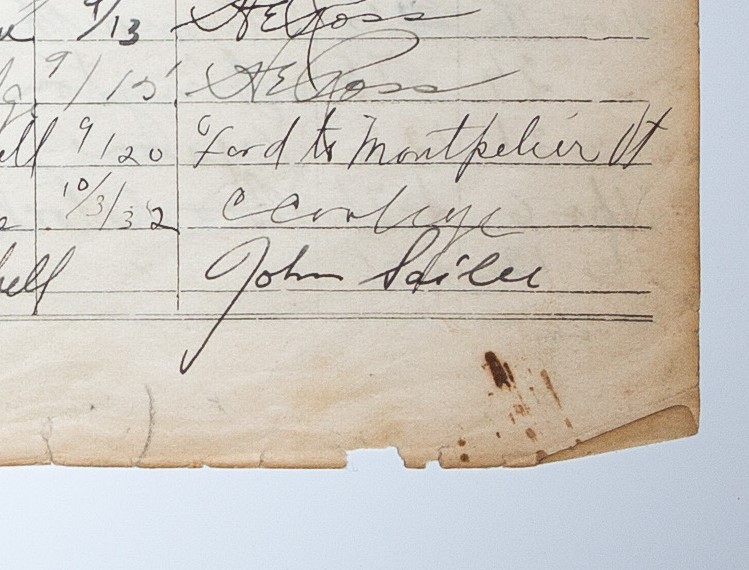 9/13 A E Ross
9/15 A E Ross
ell 9/20 Ford to Montpelier Vt
10/3/32
bell John Sailer